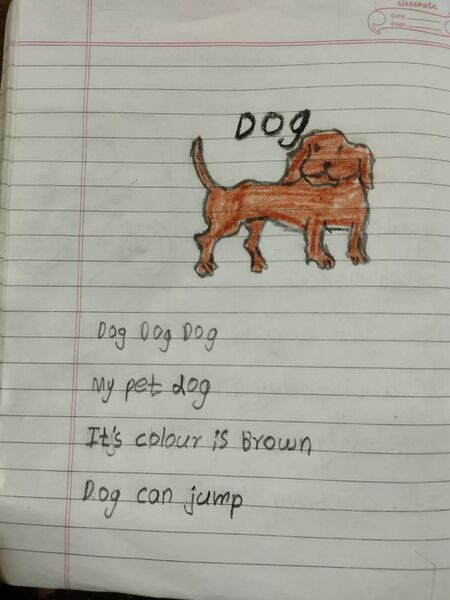 classmate
Date
Page
DOG
Dog Dog Dog
My pet dog
It's colour is Brown
Dog can jump